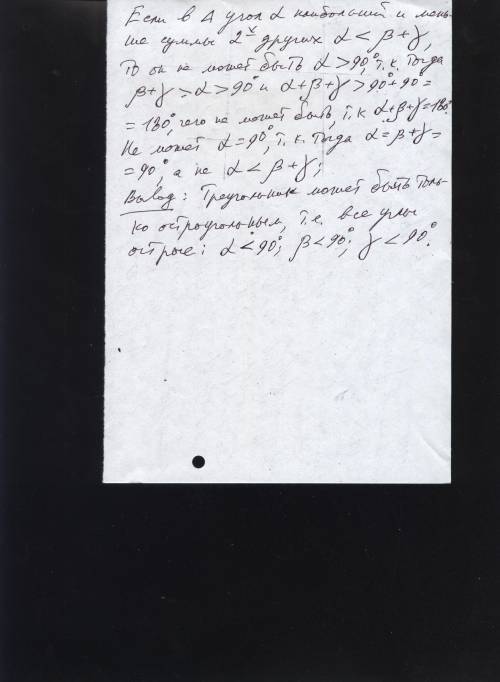 Если в Δ угол α наибольший и мень-
ше суммы 2х других α < β + γ,
то он не может быть α > 90°, т.к. тогда
β+γ > α > 90° и α+β+γ > 90°+90° =
= 180°, чего не может быть, т.к α+β+γ=180°.
Не может α = 90°, т.к. тогда α = β+γ =
= 90°, а не α < β + γ;
Вывод: Треугольник может быть толь-
ко остроугольным, т.е. все углы
острые: α < 90°; β < 90°; γ < 90°.